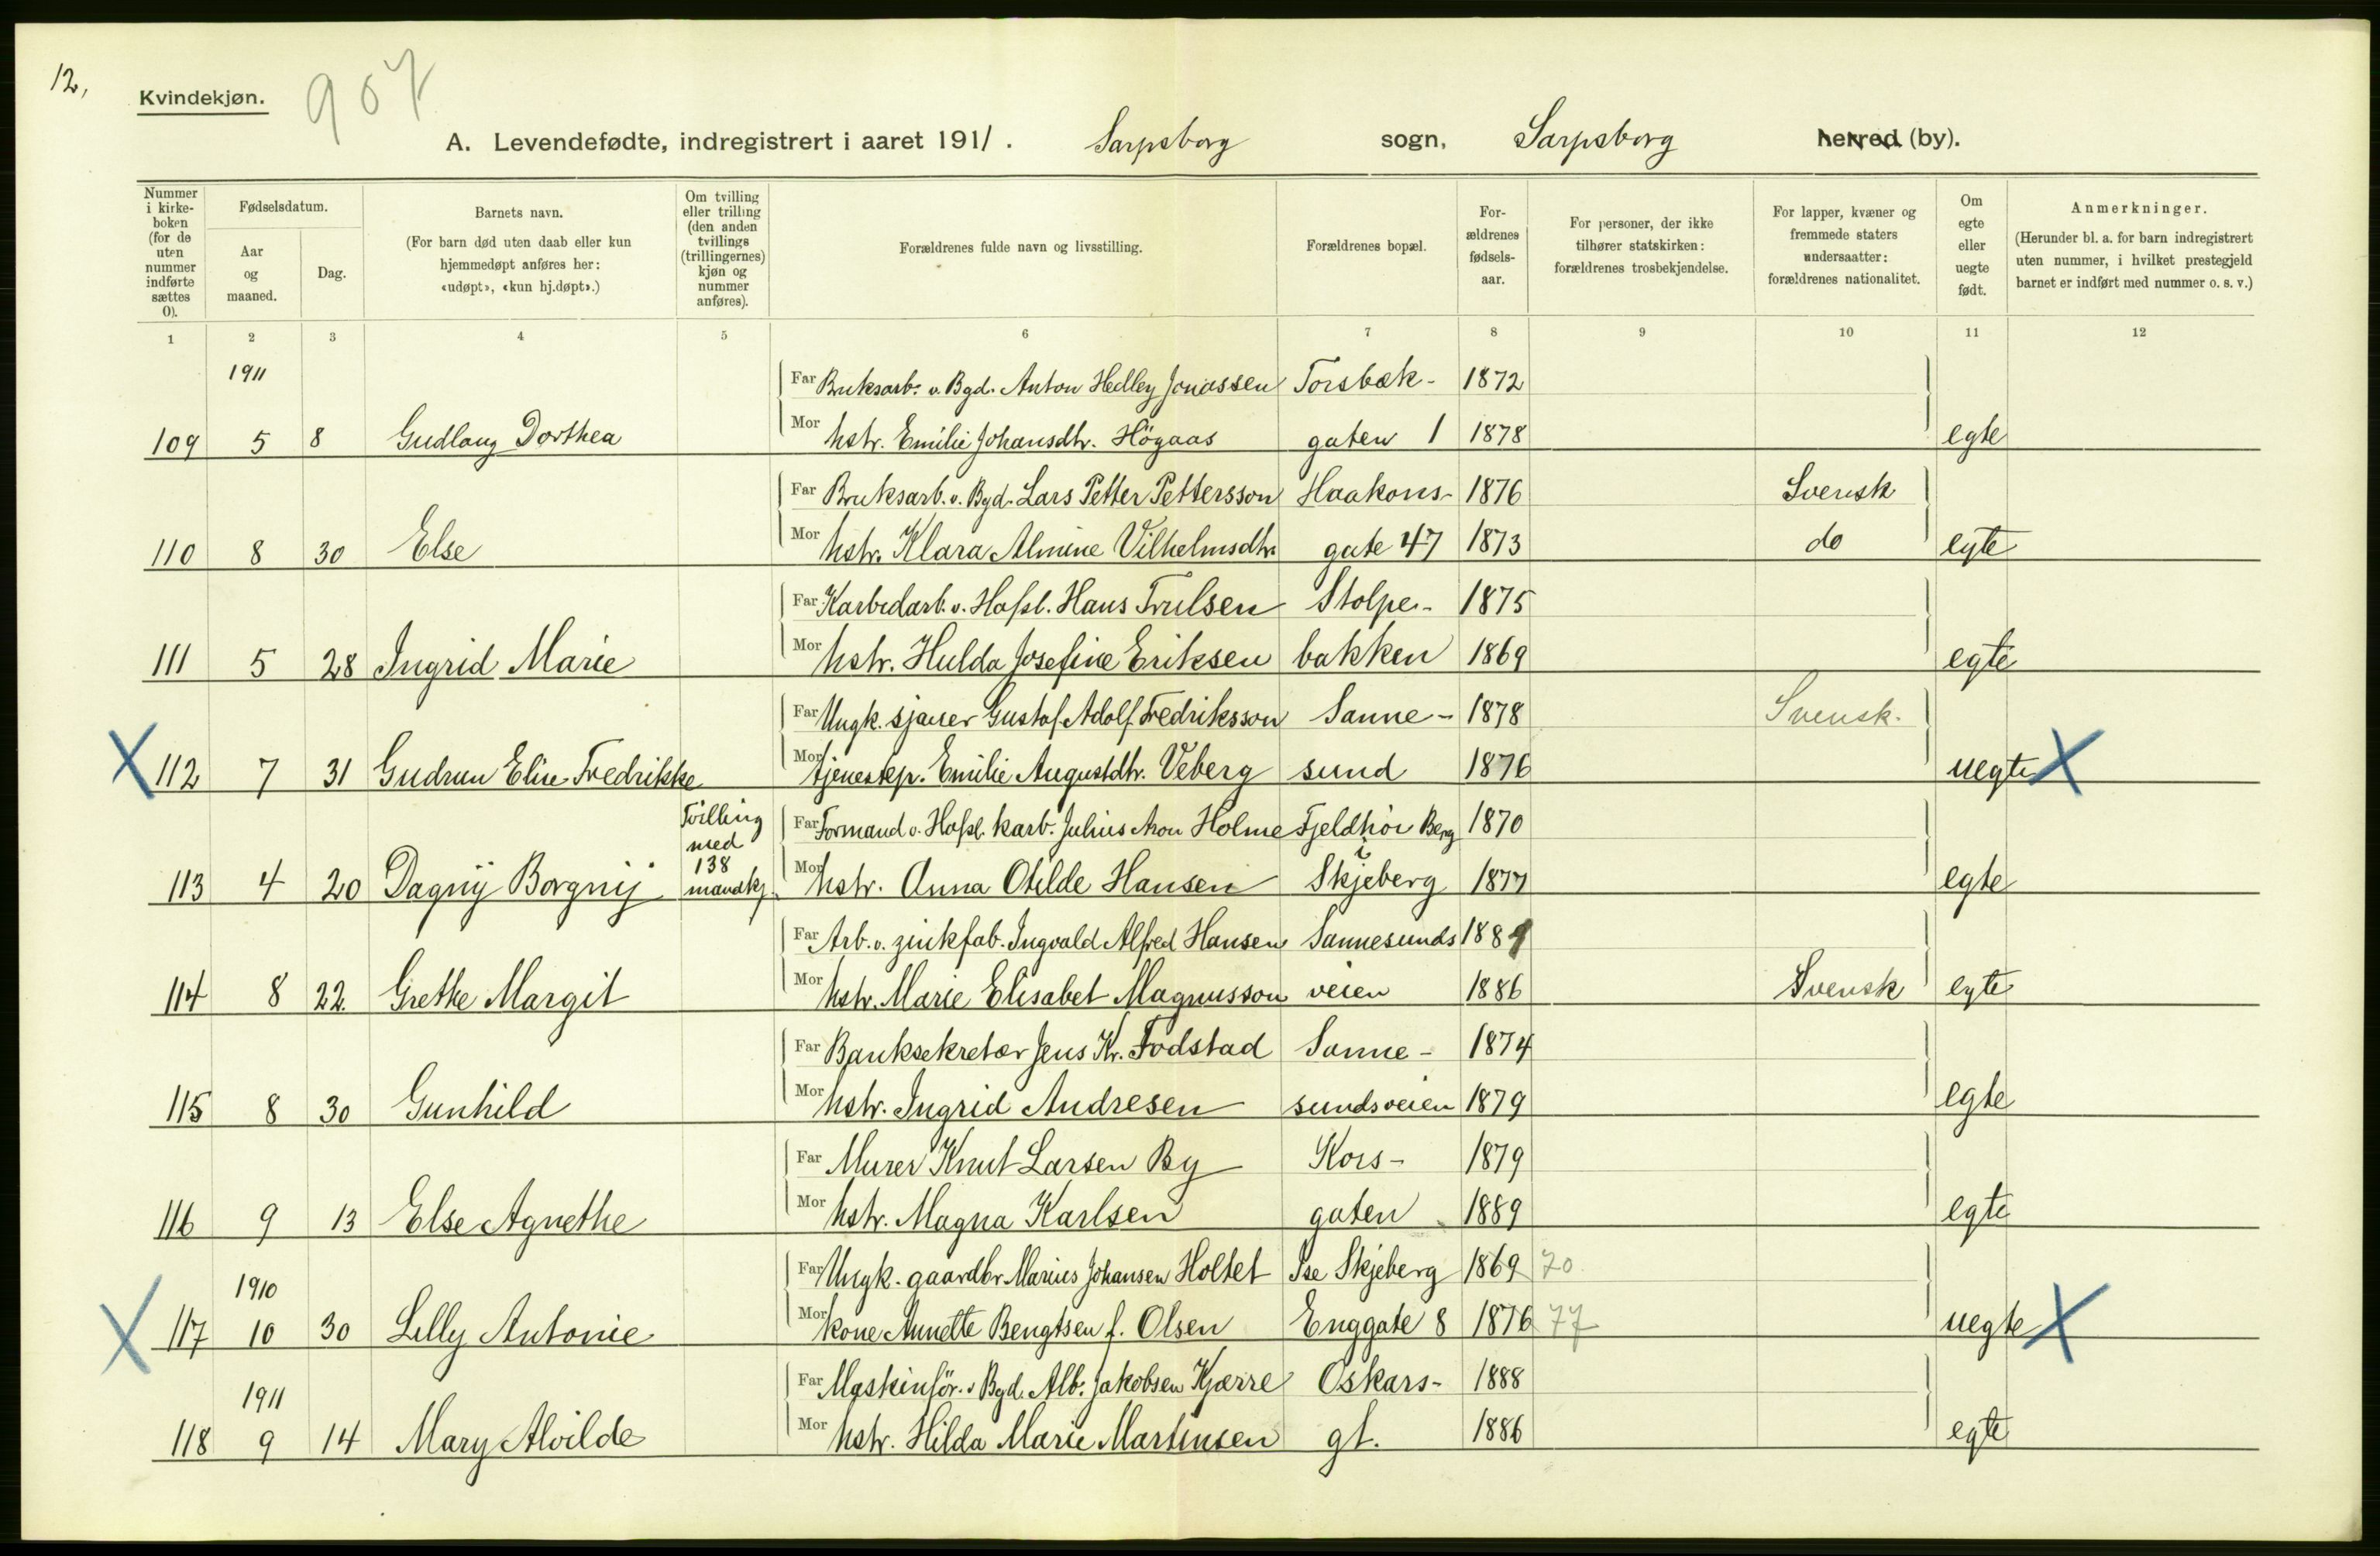 12,
Kvindekjøn.
907
A. Levendefødte, indregistrert i aaret 1911. Sarpsborg sogn, Sarpsborg herred (by).
Nummer i kirke-boken (for de uten nummer indførte sættes 0).
Fødselsdatum.
Aar og maaned.
Dag.
Barnets navn.
(For barn død uten daab eller kun hjemmedøpt anføres her: «udøpt», «kun hj.døpt».)
Om tvilling eller trilling (den anden tvillings (trillingernes) kjøn og nummer anføres).
Forældrenes fulde navn og livsstilling.
Forældrenes bopæl.
For-ældrenes fødsels-aar.
For personer, der ikke tilhører statskirken: forældrenes trosbekjendelse.
For lapper, kvæner og fremmede staters undersaatter: forældrenes nationalitet.
Om egte eller uegte født.
Anmerkninger.
(Herunder bl. a. for barn indregistrert uten nummer, i hvilket prestegjeld barnet er indført med nummer o. s. v.)
1 2 3 4 5 6 7 8 9 10 11 12
1911 Far Bruksarb. v. Bgd. Anton Hedley Jonassen Torsbæk- 1872
109 5 8 Gudlaug Dorthea Mor hstr. Emilie Johansdtr. Högaas gaten 1 1878 egte
Far Bruksarb. v. Bgd. Lars Petter Pettersson Haakons- 1876 Svensk
110 8 30 Else Mor hstr. Klara Almine Vilhelmsdtr. gate 47 1873 do egte
Far Karbidarb. v. Hafsl. Hans Trulsen Stolpe- 1875
111 5 28 Ingrid Marie Mor hstr. Hulda Josefine Eriksen bakken 1869 egte
Far Ungk. sjauer Gustaf Adolf Fredriksson Sanne- 1878 Svensk.
X 112 7 31 Gudrun Elise Fredrikke Mor tjenestep. Emilie Augustdtr. Veberg sund 1876 uegte X
Tvilling med 138 mandkj. Far Formand v. Hafsl. karb. Julius Aron Holme Fjeldhøi Berg i 1870
113 4 20 Dagny Borgny Mor hstr. Anna Otilde Hansen Skjeberg 1877 egte
Far Arb. v. zinkfab. Ingvald Alfred Hansen Sannesunds 1889
114 8 22. Grethe Margit Mor hstr. Marie Elisabet Magnusson veien 1886 Svensk egte
Far Banksekretær Jens Kr. Fodstad Sanne- 1874
115 8 30 Gunhild Mor hstr. Ingrid Andresen sundsveien 1879 egte
Far Murer Knut Larsen By Kors- 1879
116 9 13 Else Agnethe Mor hstr. Magna Karlsen gaten 1889 egte
1910 Far Ungk. gaardbr. Marius Johansen Holtet Ise Skjeberg 1869 70
X 117 10 30 Lilly Antonie Mor kone Annette Bengtsen f. Olsen Enggate 8 1876 77 uegte X
1911 Far Maskinför. v Bgd. Alb. Jakobsen Kjærre Oskars- 1888
118 9 14 Mary Alvilde Mor hstr. Hilda Marie Martinsen gt. 1886 egte